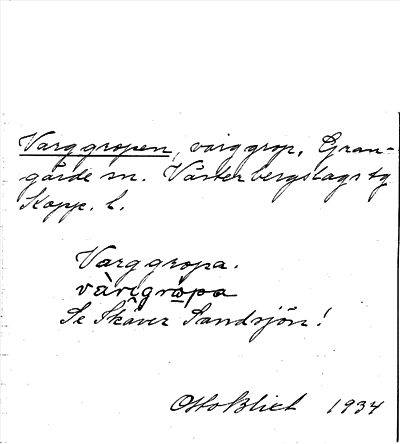 Varggropen, varggrop, Gran-
gärde sn. Västerbergslags tg
Kopp. l.
Varggropa.
vàrigrɷpa
Se Skäver Sandsjön!
Otto Blixt 1934